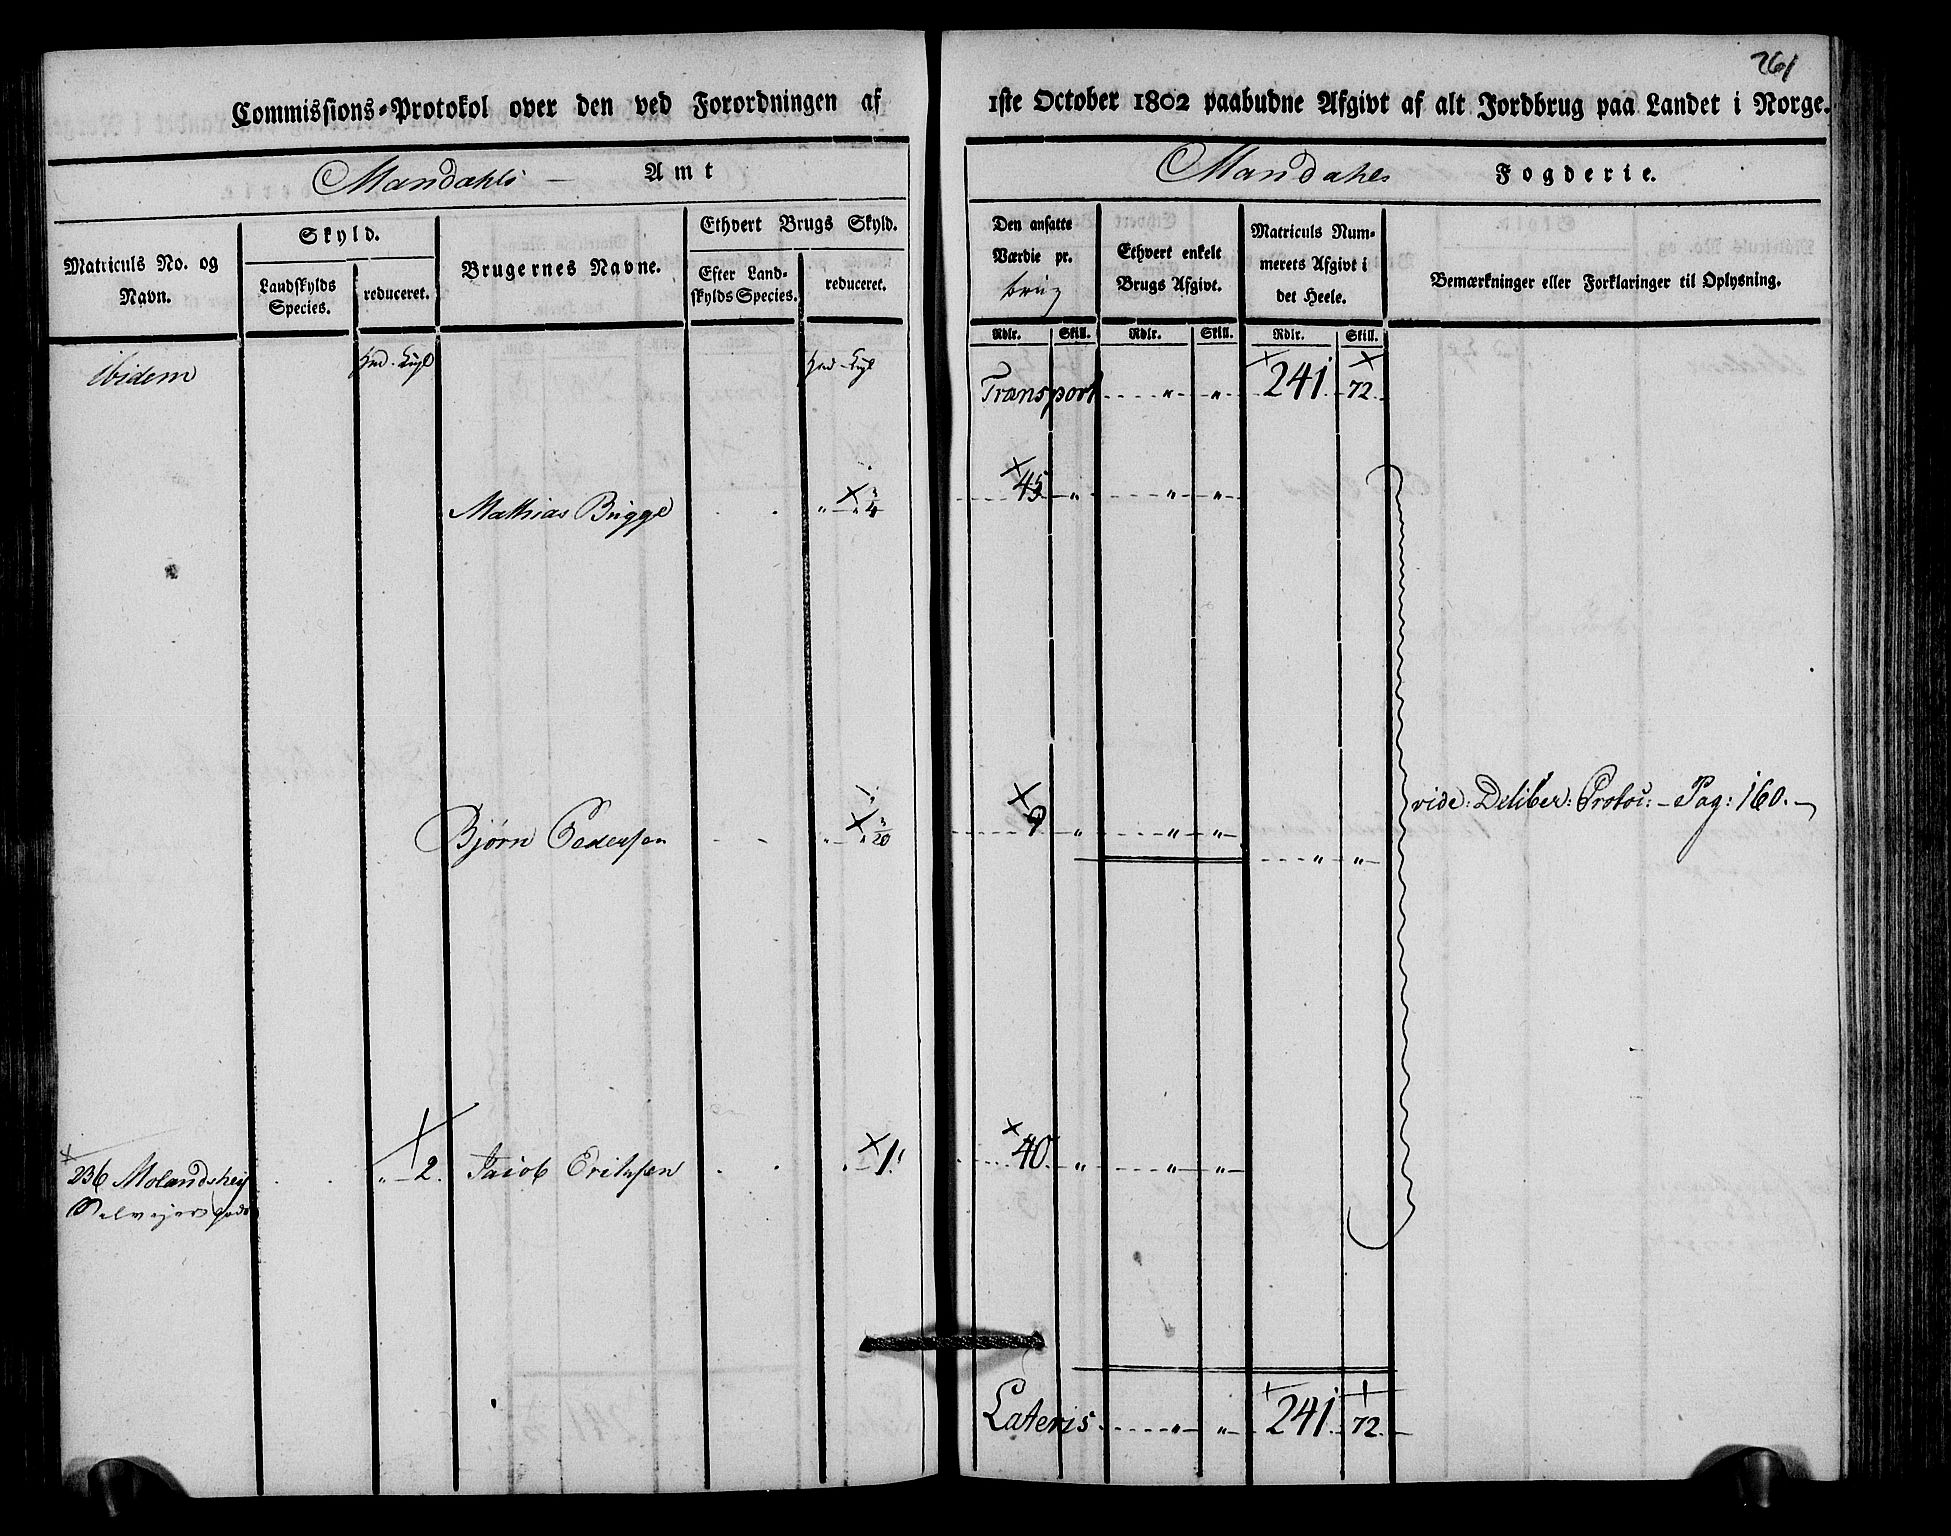 261
Commissions-Protokol over den ved Forordningen af 1ste October 1802 paabudne Afgivt af alt Jordbrug paa Landet i Norge.
Mandahls Amt
Mandahls Fogderie.
Matriculs No. og Navn.
Skyld.
Landskylds Species.
reduceret.
Brugernes Navne.
Ethvert Brugs Skyld.
Efter Landskylds Species.
reduceret.
Den ansatte Værdie pr. brug
Ethvert enkelt Brugs Afgivt.
Matriculs Nummerets Afgivt i det Heele.
Bemærkninger eller Forklaringer til Oplysning.
Rdlr. Skill. Rdlr. Skill. Rdlr. Skill.
ibidem
Transport " " 241 72
Mathias Brigge " " 3/4 45 " " "
Bjørn Pedersen " " 3/20 9 " " "
" "
vide: Deliber: Protoc: - Pag: 160.
236 Molandshei " 2. Jacob Erichsen " 1 40 " " "
Selvejergods
Lateris " " 241 72